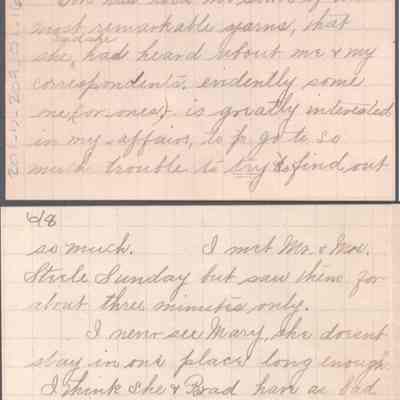 most remarkable yarns, that
she, had heard about me & my
correspondents, evidently some
one (or ones) is greatly interested
in my affairs, to go to so
much trouble to try & find out
'08
so much. I met Mr. & Mrs.
Steele Sunday but saw them for
about three minutes only.
I never see Mary, she doesnt
stay in one place long enough.
I think she & Brad have as bad